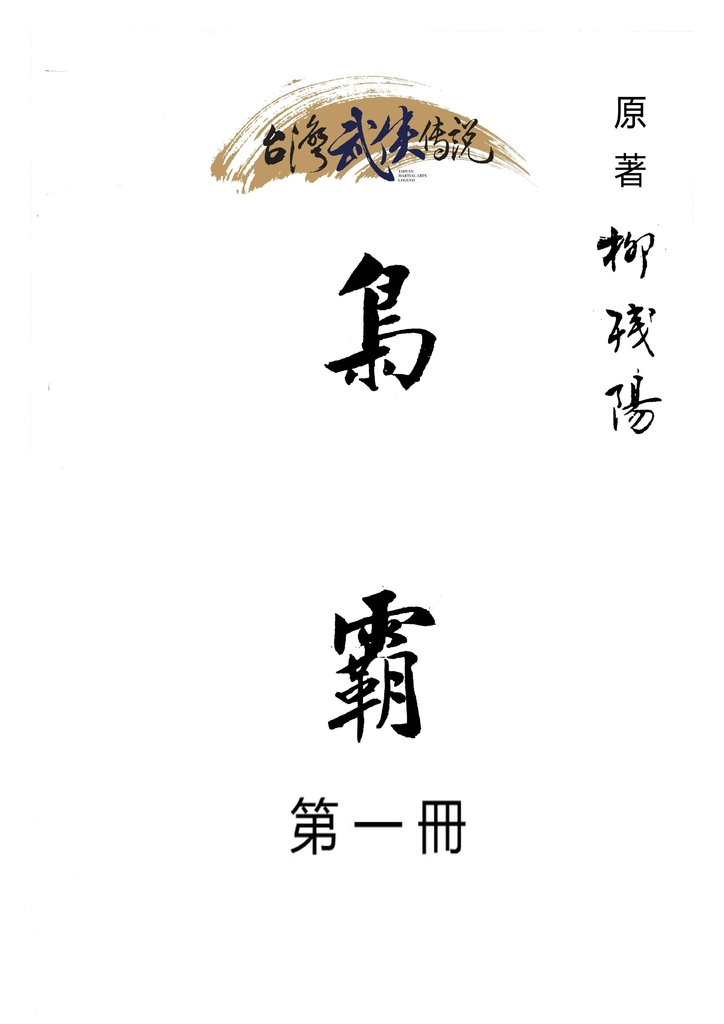 台灣武俠傳説
TAIWAN
MARTIAL ARTS
LEGEND
原著
柳残陽
梟
霸
第一冊